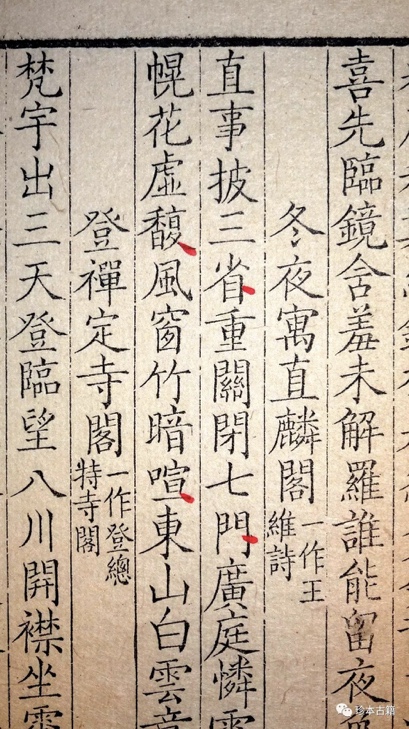 喜先臨鏡含羞未解羅誰能留夜
冬夜寓直麟閣一作王維詩
直事披三省重關閉七門廣庭憐雪
幌花虛馥風窗竹暗喧東山白雲意
登禪定寺閣一作登總特寺閣
梵宇出三天登臨望八川開襟坐霄
珍本古籍